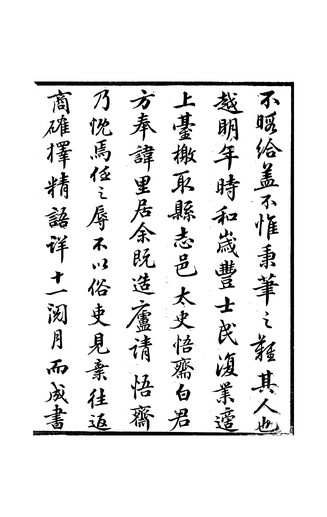 不暇給蓋不惟秉筆之難其人也
越明年時和歲豐士民復業適
上臺檄取縣志邑太史悟齋白君
方奉諱里居余既造廬請悟齋
乃慨焉任之辱不以俗吏見棄往返
商確擇精語詳十一閱月而成書